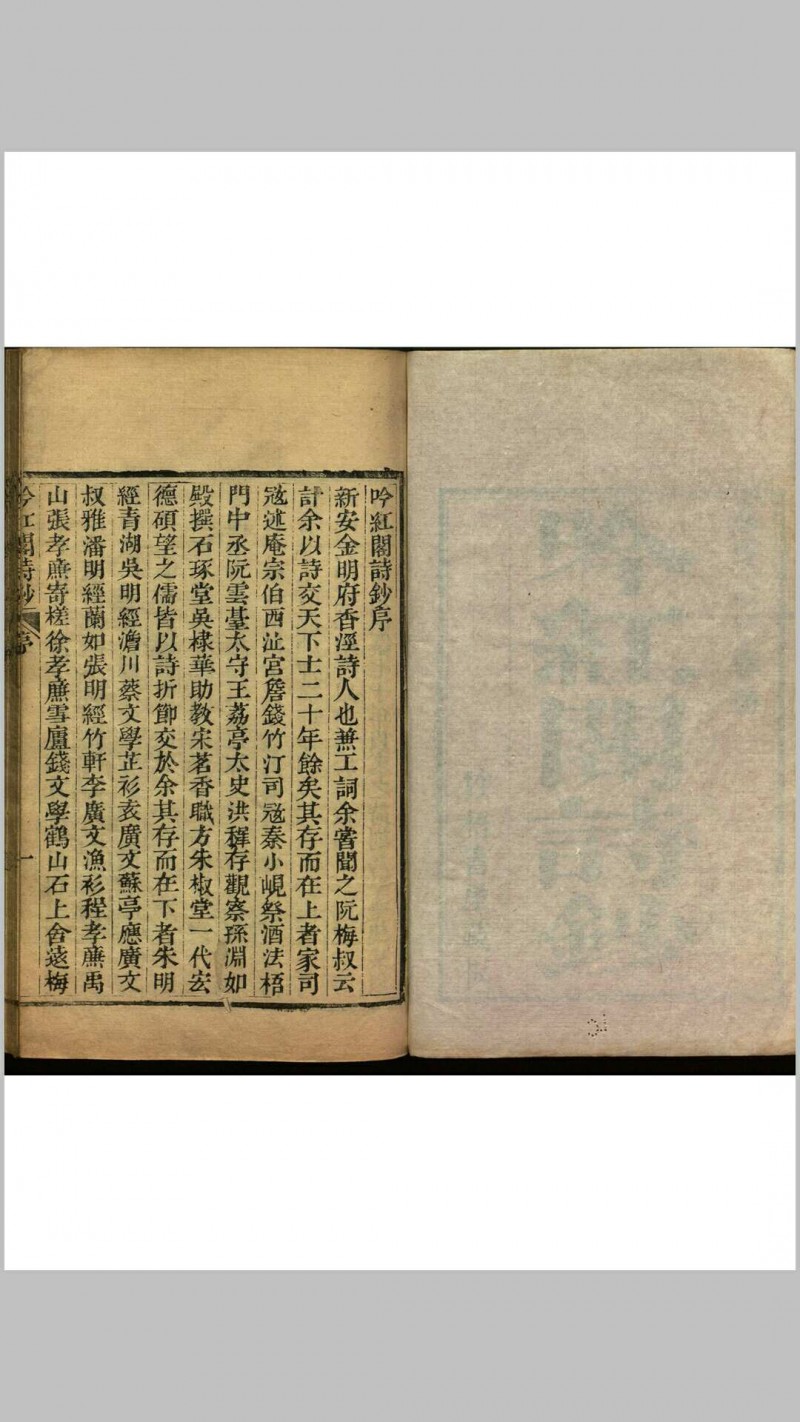 吟紅閣詩鈔序
新安金明府香涇詩人也兼工詞余嘗聞之阮梅叔云
計余以詩交天下士二十年餘矣其存而在上者家司
寇述庵宗伯西沚宮詹錢竹汀司寇秦小峴祭酒法梧
門中丞阮雲臺太守王荔亭太史洪稺存觀察孫淵如
殿撰石琢堂吳棣華助教宋茗香職方朱椒堂一代宏
德碩望之儒皆以詩折節交於余其存而在下者朱明
經青湖吳明經澹川蔡文學芷衫袁廣文蘇亭應廣文
叔雅潘明經蘭如張明經竹軒李廣文漁衫程孝廉禹
山張孝廉寄槎徐孝廉雪廬錢文學鶴山石上舍遠梅
吟紅閣詩鈔 序 一